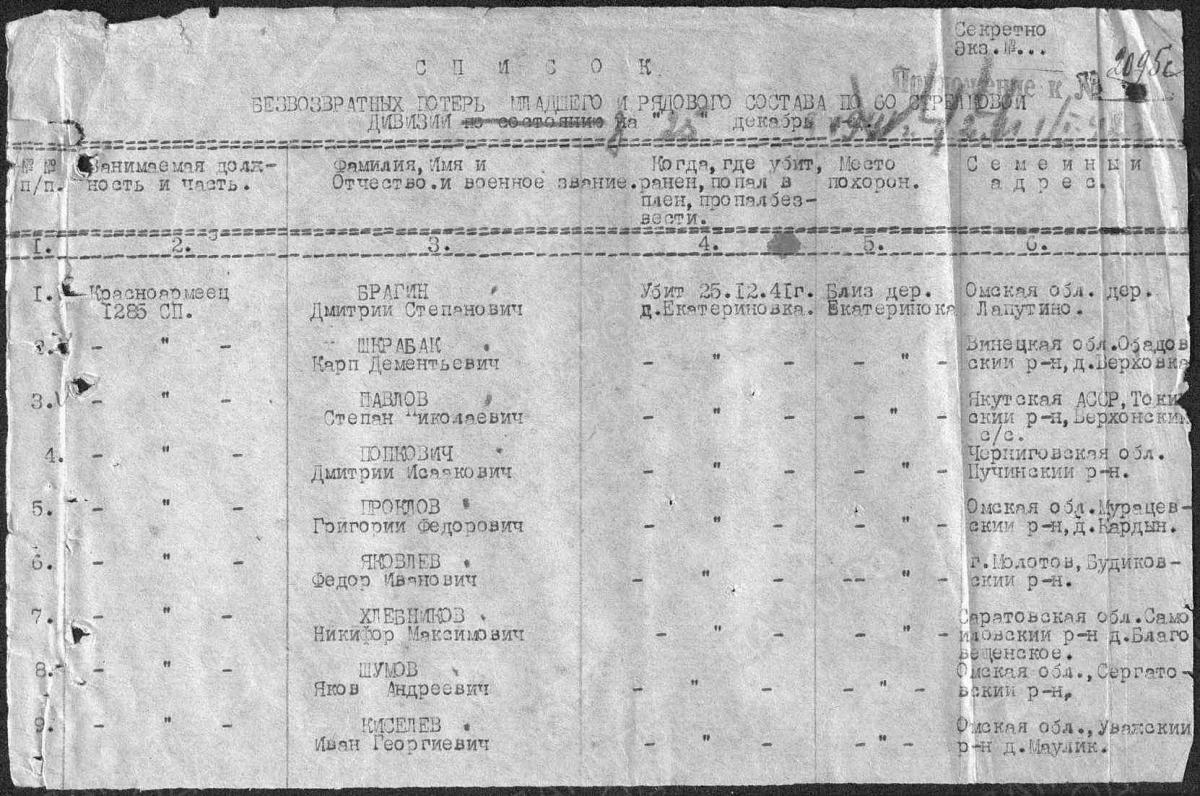 Секретно
Экз.№...
Приложение к №
2095с
С П И С О К
БЕЗВОЗВРАТНЫХ ПОТЕРЬ МЛАДШЕГО И РЯДОВОГО СОСТАВА ПО 60 СТРЕЛКОВОЙ
ДИВИЗИИ по состоянию на "25" декабрь
№ № Занимаемая долж- Фамилия, Имя и Когда, где убит, Место С е м е й н ы й
п/п. ность и часть. Отчество.и военное звание. ранен, попал в похорон. а д р е с.
плен, пропалбез-
вести.
I. 2. 3. 4. 5. 6.
I. Красноармеец БРАГИН Убит 25.12.41г. Близ дер. Омская обл. дер.
1285 СП. Дмитрии Степанович д.Екатериновка. Екатеринока Лапутино.
2. - " - ШКРАБАК Винецкая обл.Обадов
Карп Дементьевич - " - - " - ский р-н, д.Верховка
3. - " - ПАВЛОВ Якутская АССР, Токи
Степан Николаевич - " - - " - ский р-н, Верхонский
с/с.
4. - " - ПОПКОВИЧ Черниговская обл.
Дмитрии Исаакович - " - - " - Пучинский р-н.
5. - " - ПРОКЛОВ Омская обл.Мурацев-
Григории Федорович - " - - " - ский р-н, д.Кардын.
6. - " - ЯКОВЛЕВ г.Молотов, Будиков-
Федор Иванович - " - -- " - ский р-н.
7. - " - ХЛЕБНИКОВ Саратовская обл.Само
Никифор Максимович - " - - " - иловский р-н д.Благо
вещенское.
8. - " - ШУМОВ Омская обл., Сергато-
Яков Андреевич - " - - " - вский р-н,
9. - " - КИСЕЛЕВ Омская обл., Уважский
Иван Георгиевич - " - - " - р-н д. Маулик.